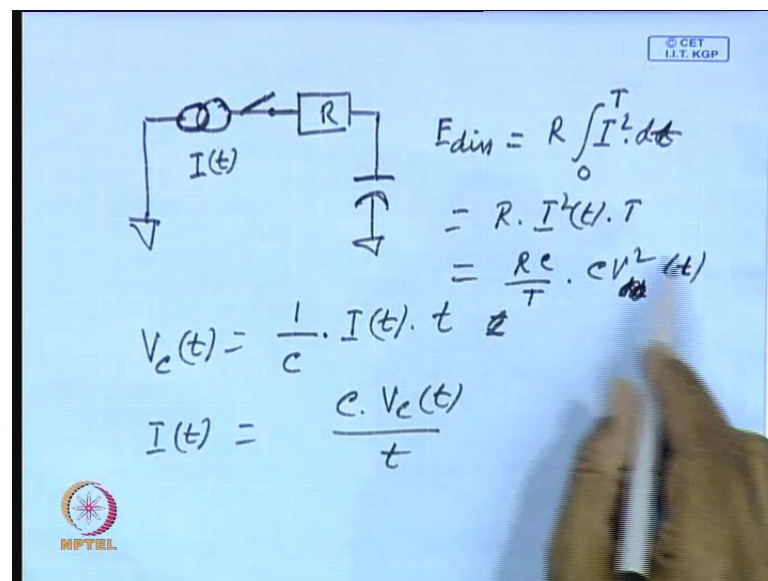 © CET
I.I.T. KGP
R
I(t)
E_diss = R ∫₀ᵀ I². dt
= R. I²(t). T
= RC/T . CV² (t)
V_c(t) = 1/C . I(t). t
I(t) = C. V_c(t) / t
NPTEL